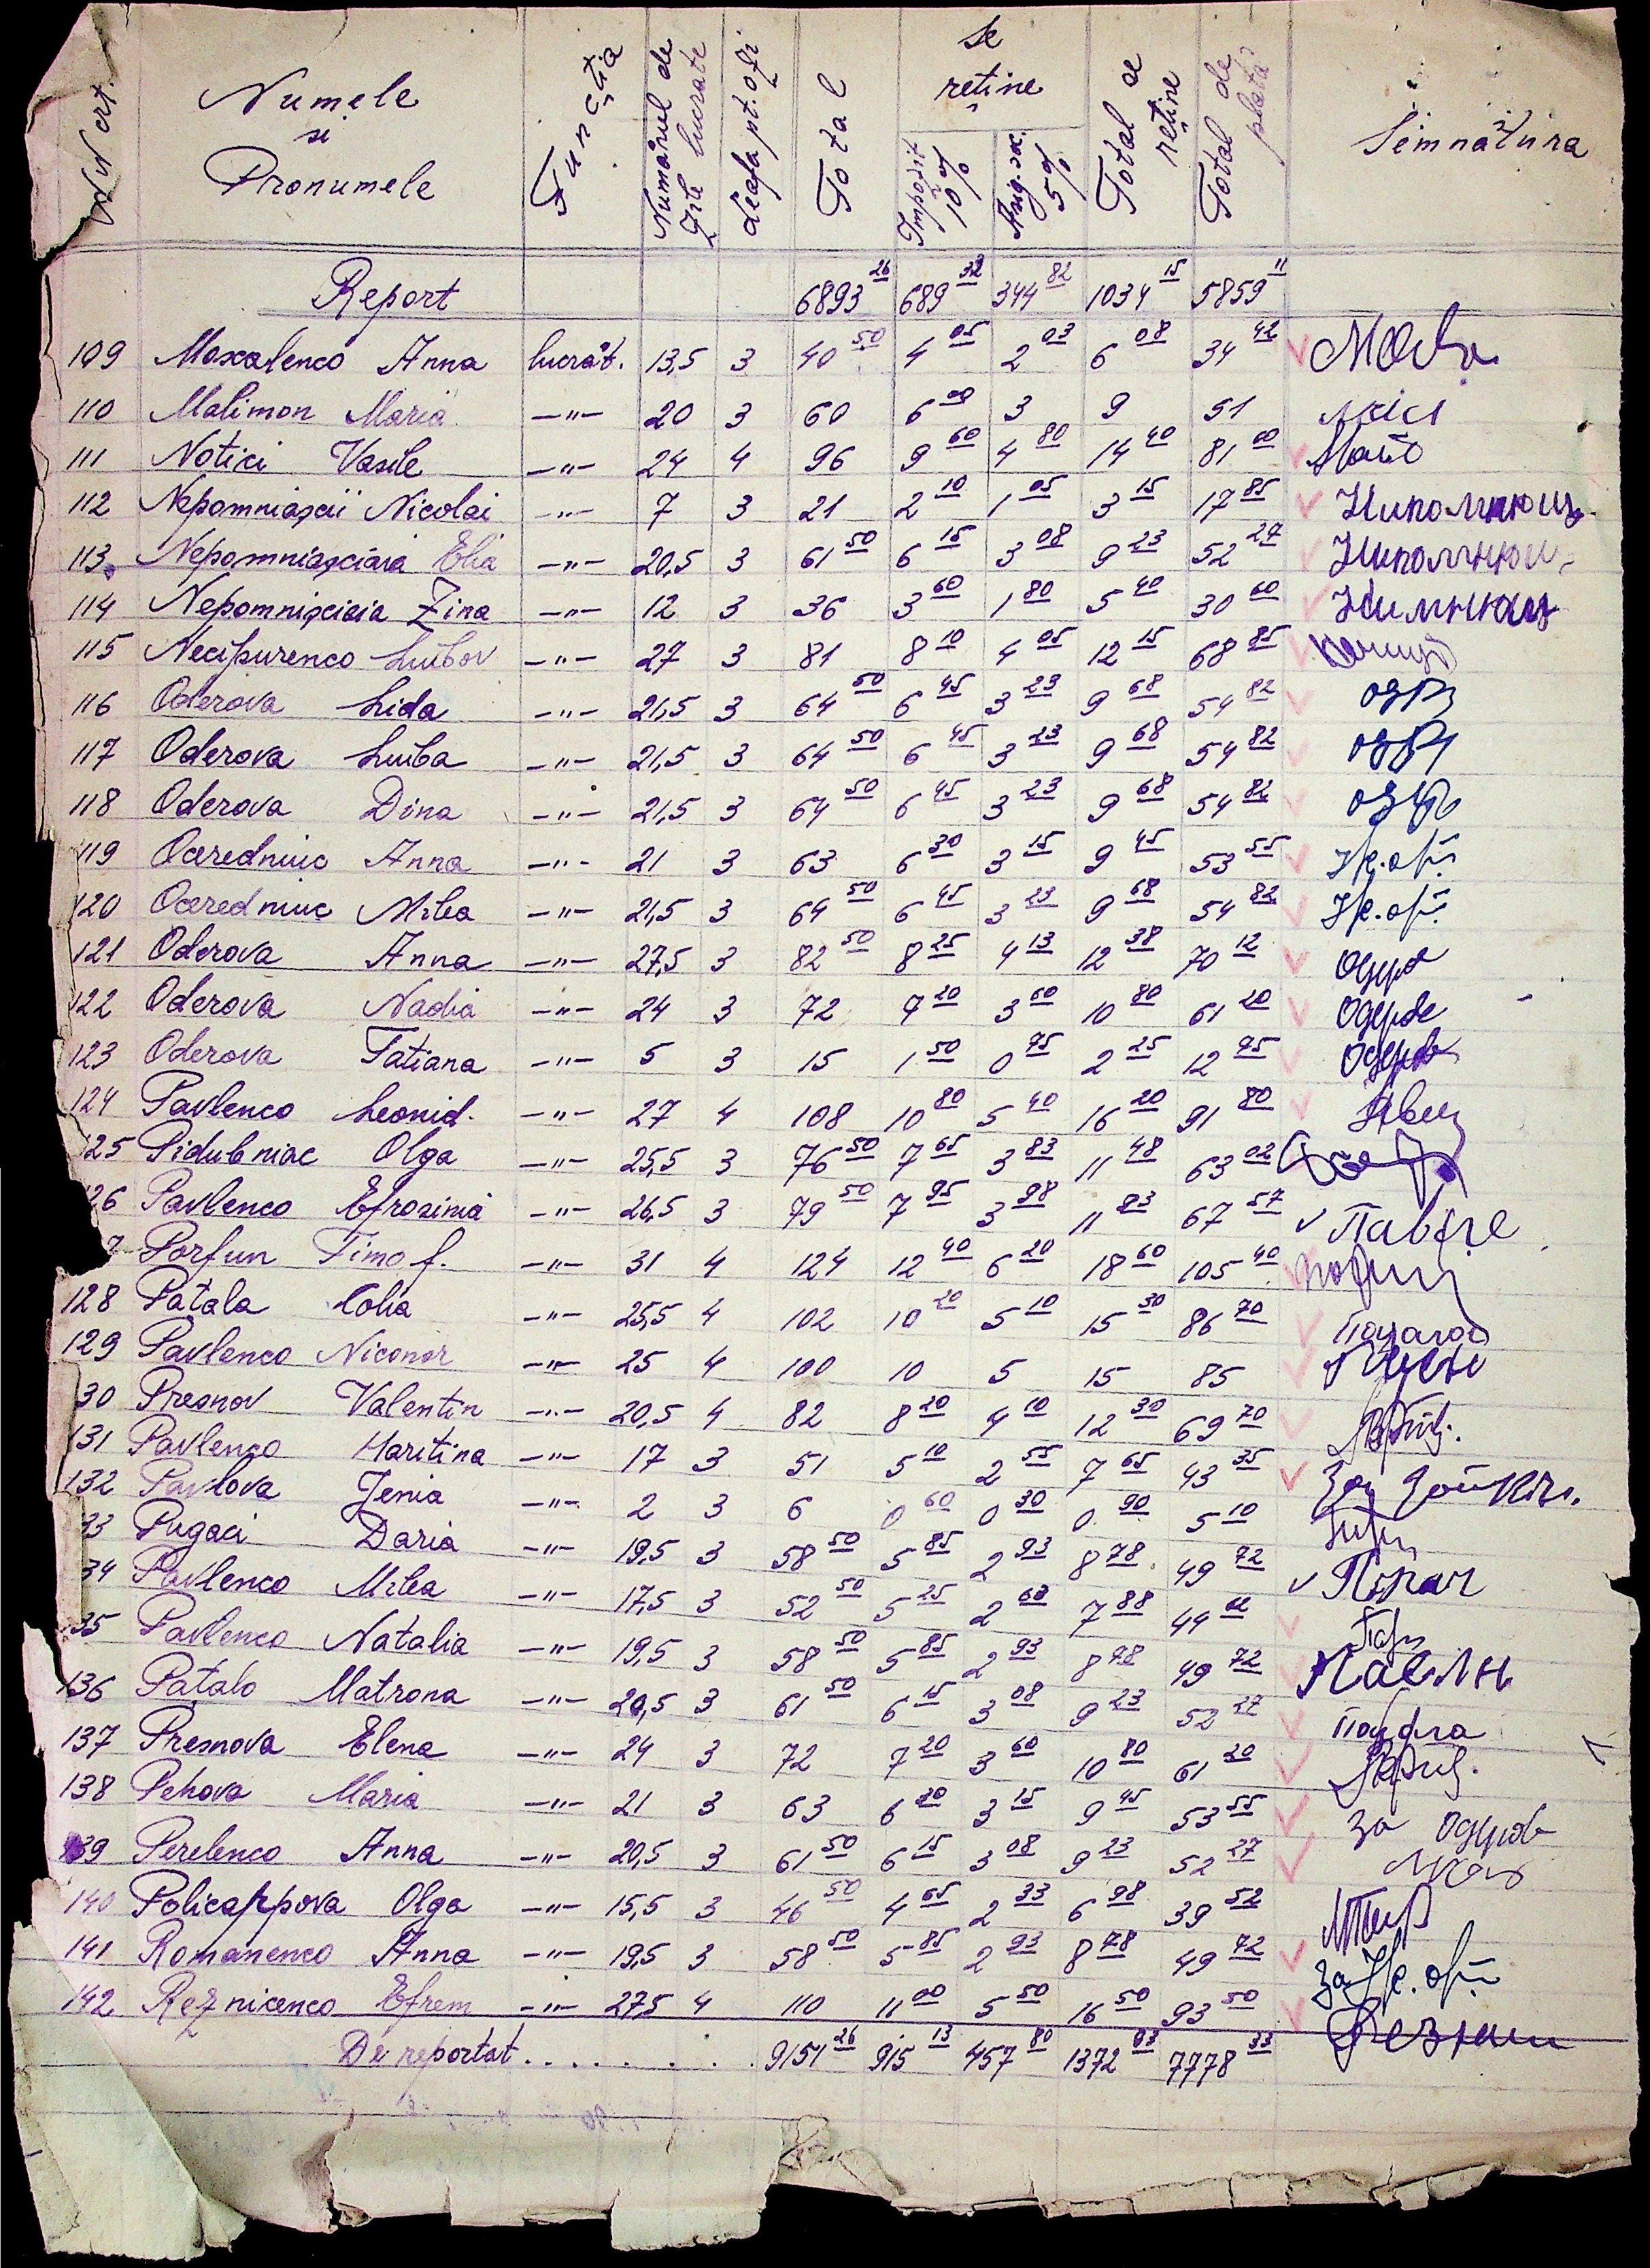 Nr crt. Numele si Pronumele Funcția Numărul de zile lucrate Leafa pt. o zi Total Se reține Impozit 10% Asig. soc. 5% Total de reține Total de plată Semnătura
Report 6893 26 689 32 344 82 1034 15 5859 11
109 Moscalenco Anna lucrăt. 13,5 3 40 50 4 05 2 03 6 08 34 42
110 Malimon Maria -"- 20 3 60 6 00 3 9 51
111 Notici Vasile -"- 24 4 96 9 60 4 80 14 40 81 60
112 Nepomniașcii Nicolai -"- 7 3 21 2 10 1 05 3 15 17 85
113 Nepomniașciaia Elia -"- 20,5 3 61 50 6 15 3 08 9 23 52 27
114 Nepomnișciaia Zina -"- 12 3 36 3 60 1 80 5 40 30 60
115 Necipurenco Liubov -"- 27 3 81 8 10 4 05 12 15 68 85
116 Oderova Lida -"- 21,5 3 64 50 6 45 3 23 9 68 54 82
117 Oderova Liuba -"- 21,5 3 64 50 6 45 3 23 9 68 54 82
118 Oderova Dina -"- 21,5 3 64 50 6 45 3 23 9 68 54 82
119 Oceredniuc Anna -"- 21 3 63 6 30 3 15 9 45 53 55
120 Oceredniuc Milea -"- 21,5 3 64 50 6 45 3 23 9 68 54 82
121 Oderova Anna -"- 27,5 3 82 50 8 25 4 13 12 38 70 12
122 Oderova Nadia -"- 24 3 72 7 20 3 60 10 80 61 20
123 Oderova Tatiana -"- 5 3 15 1 50 0 75 2 25 12 75
124 Pavlenco Leonid. -"- 27 4 108 10 80 5 40 16 20 91 80
125 Pidubniac Olga -"- 25,5 3 76 50 7 65 3 83 11 48 63 02
26 Pavlenco Efrosinia -"- 26,5 3 79 50 7 95 3 98 11 93 67 57
7 Porfun Timof. -"- 31 4 124 12 40 6 20 18 60 105 40
128 Patala Colia -"- 25,5 4 102 10 20 5 10 15 30 86 70
129 Pavlenco Niconor -"- 25 4 100 10 5 15 85
30 Presnov Valentin -"- 20,5 4 82 8 20 4 10 12 30 69 70
131 Pavlenco Haritina -"- 17 3 51 5 10 2 55 7 65 43 35
132 Pavlova Jenia -"- 2 3 6 0 60 0 30 0 90 5 10
33 Pugaci Daria -"- 19,5 3 58 50 5 85 2 93 8 78 49 72
34 Pavlenco Milea -"- 17,5 3 52 50 5 25 2 63 7 88 44 62
35 Pavlenco Natalia -"- 19,5 3 58 50 5 85 2 93 8 78 49 72
136 Patalo Matrona -"- 20,5 3 61 50 6 15 3 08 9 23 52 27
137 Presnova Elena -"- 24 3 72 7 20 3 60 10 80 61 20
138 Pehova Maria -"- 21 3 63 6 30 3 15 9 45 53 55 За Одерова
139 Perelenco Anna -"- 20,5 3 61 50 6 15 3 08 9 23 52 27
140 Policappova Olga -"- 15,5 3 46 50 4 65 2 33 6 98 39 52
141 Romanenco Anna -"- 19,5 3 58 50 5 85 2 93 8 78 49 72
142 Reznicenco Efrem -"- 27,5 4 110 11 00 5 50 16 50 93 50
De reportat......... 9151 26 915 13 457 80 1372 93 7778 33